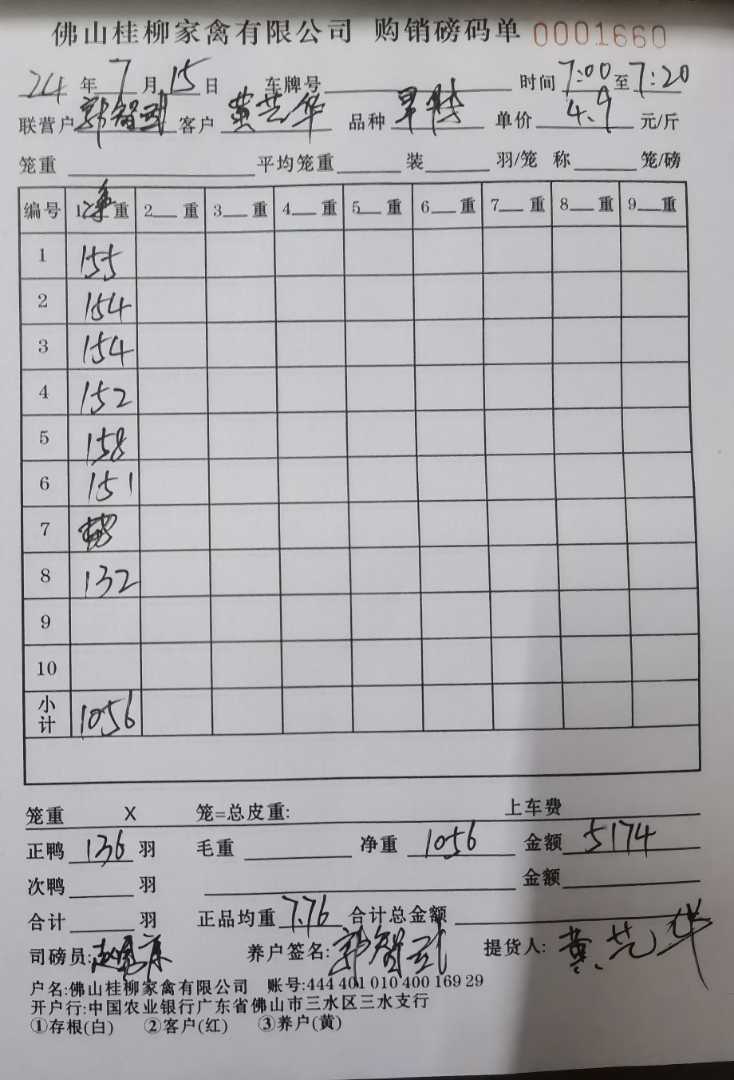 佛山桂柳家禽有限公司 购销磅码单 0001660
24年7月15日 车牌号 时间7:00至7:20
联营户 郭智武 客户 黄艺华 品种 单价 4.9 元/斤
笼重 平均笼重 装 羽/笼 称 笼/磅
编号 1净重 2 重 3 重 4 重 5 重 6 重 7 重 8 重 9 重
1 155
2 154
3 154
4 152
5 158
6 151
7
8 132
9
10
小计 1056
笼重 X 笼=总皮重: 上车费
正鸭 136 羽 毛重 净重 1056 金额 5174
次鸭 羽 金额
合计 羽 正品均重 7.76 合计总金额
司磅员: 养户签名: 郭智武 提货人: 黄艺华
户名:佛山桂柳家禽有限公司 账号:444 401 010 400 169 29
开户行:中国农业银行广东省佛山市三水区三水支行
①存根(白) ②客户(红) ③养户(黄)